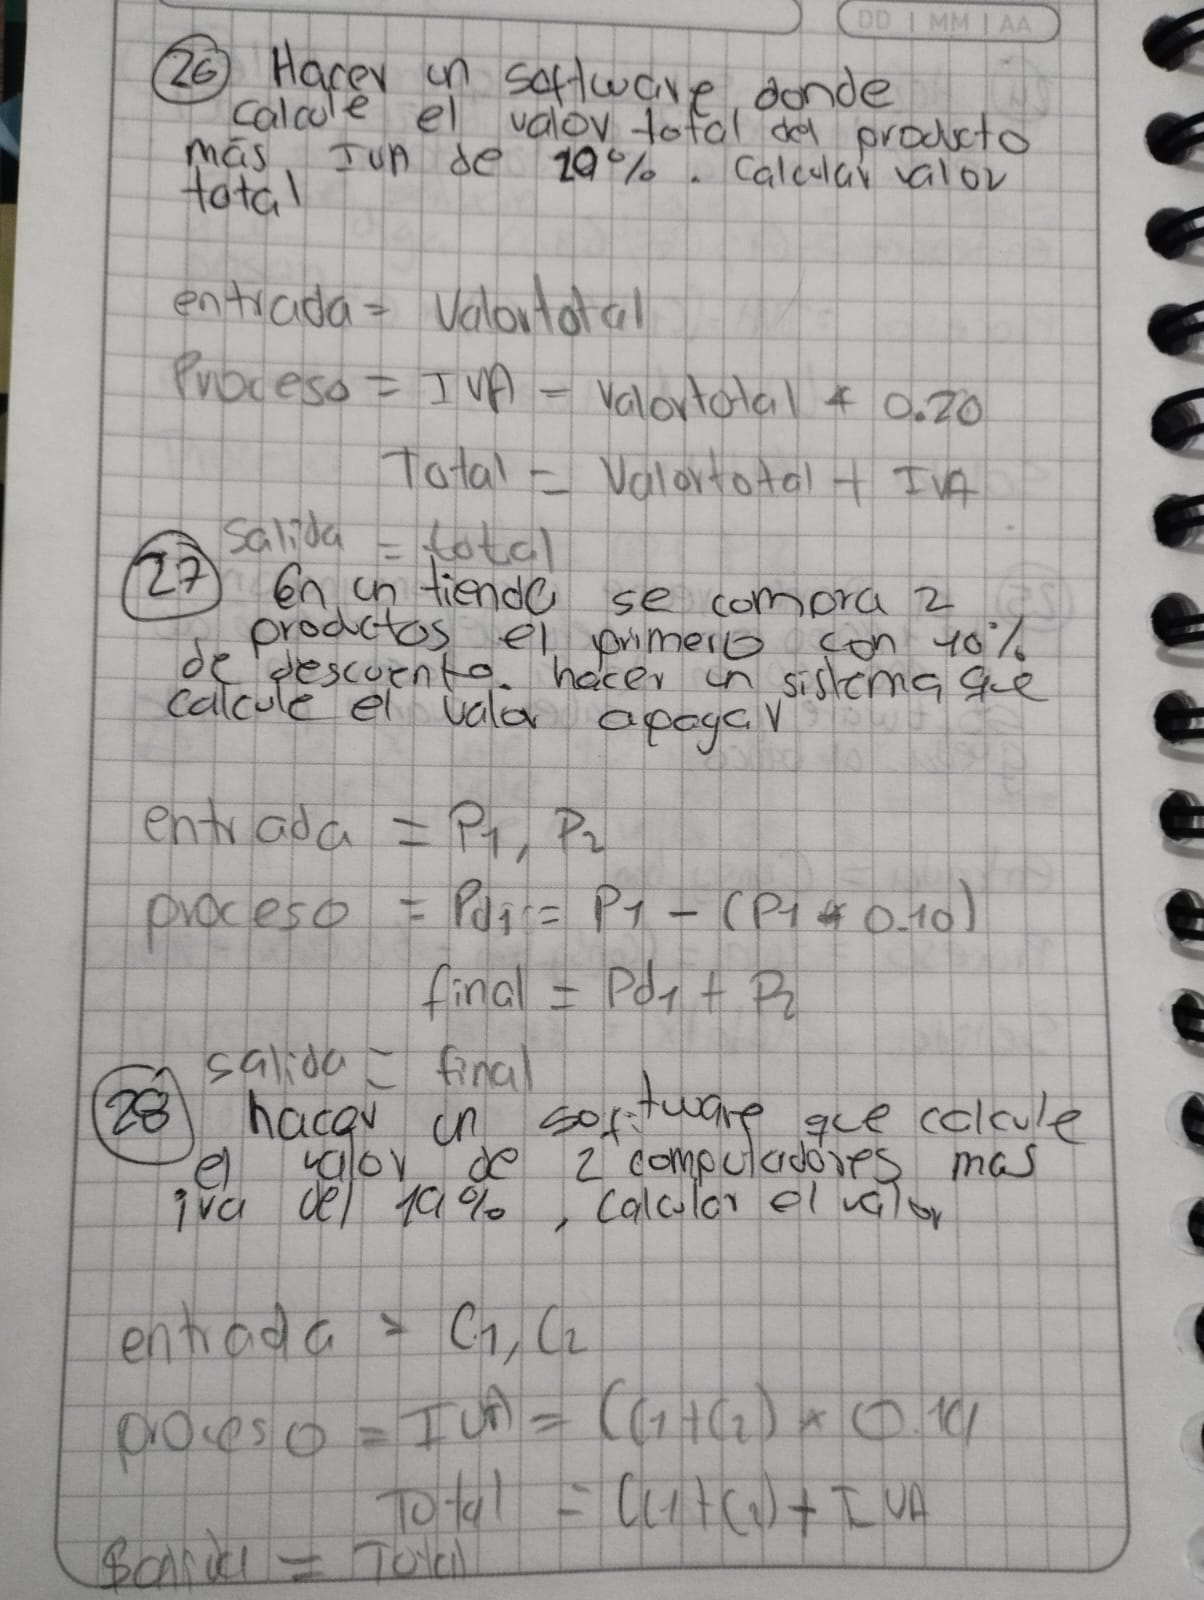 DD | MM | AA
26 Hacer un software, donde
calcule el valor total del producto
más IVA de 20%. Calcular valor
total
entrada = Valortotal
Proceso = IVA = valortotal * 0.20
Total = Valortotal + IVA
salida = total
27 En un tienda se compra 2
productos el primero con 10%
de descuento. hacer un sistema que
calcule el valor apagar
entrada = P1, P2
proceso = Pd1 = P1 - (P1 * 0.10)
final = Pd1 + P2
salida = final
28 hacer un software que calcule
el valor de 2 computadores mas
iva del 19%, calcular el valor
entrada = C1, C2
proceso = IVA = (C1+C2) * 0.19
Total = (C1+C2) + IVA
Salida = Total